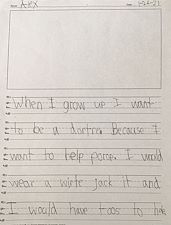 Name Alex
When I grow up I want
to be a doctre. Because I
want to help porpe. I would
wear a wirte jack it and
I would have toos to hele